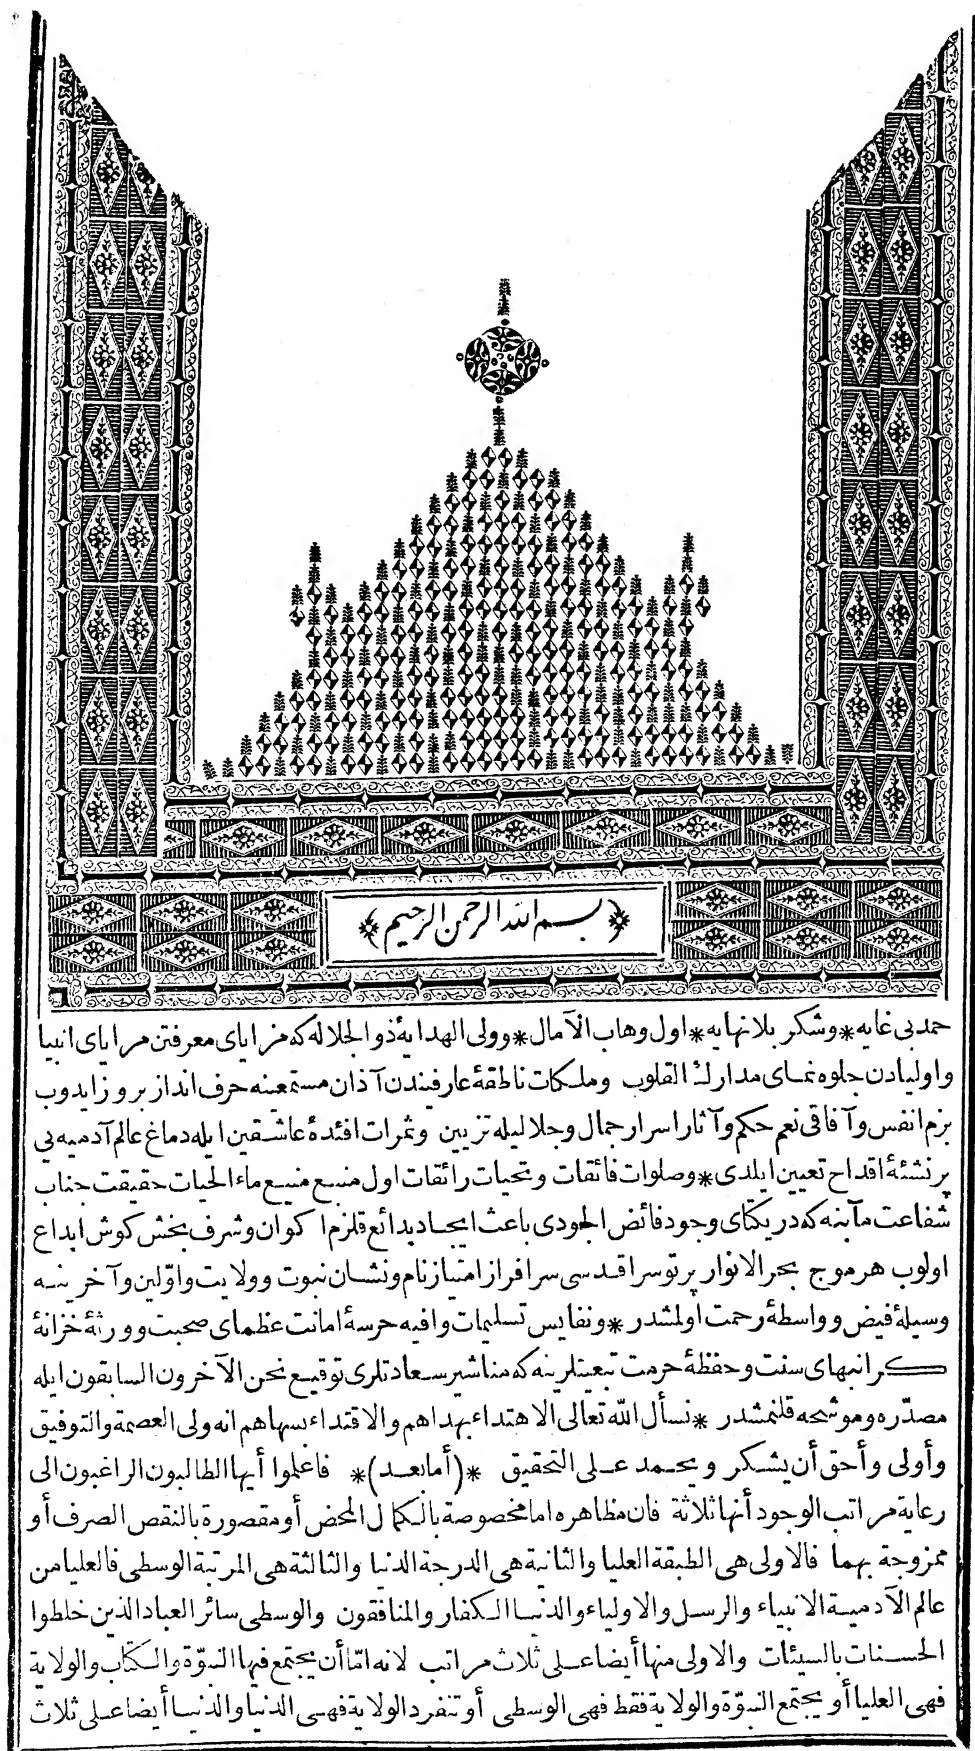 بسم الله الرحمن الرحيم
حمد بی غایه * وشکر بلا نهایه * اول وهاب الآمال * وولی الهدایهٔ ذو الجلاله که مزایای معرفتن مرایای انبیا
واولیادن جلوه نمای مدارك القلوب وملکات ناطقهٔ عارفیندن آذان مستمعینه حرف انداز بروز ایدوب
بزم انفس وآفاقی نعم حکم وآثار اسرار جمال وجلالیله تزیین وثمرات افئدهٔ عاشقین ایله دماغ عالم آدمیه یی
پر نشئهٔ اقداح تعیین ایلدی * وصلوات فائقات وتحیات رائقات اول منبع منیع ماء الحیات حقیقت جناب
شفاعت مآبنه که در یکتای وجود فائض الجودی باعث ایجاد بدائع قلزم اکوان وشرف بخش کوش ابداع
اولوب هر موج بحر الانوار پرتو سر اقدسی سرافراز امتیاز نام ونشان نبوت وولایت واولین وآخرینه
وسیلهٔ فیض وواسطهٔ رحمت اولمشدر * ونفایس تسلیمات وافیه حرسهٔ امانت عظمای صحبت وورثهٔ خزانهٔ
کرانبهای سنت وحفظهٔ حرمت تبعیتلرینه که مناشیر سعادتلری توقیع نحن الآخرون السابقون ایله
مصدّره وموشحه قلنمشدر * نسأل الله تعالى الاهتداء بهداهم والاقتداء بسهاهم انه ولی العصمة والتوفیق
وأولى وأحق أن یشکر ویحمد علی التحقیق * (أما بعد) * فاعلموا أیها الطالبون الراغبون الی
رعایة مراتب الوجود أنها ثلاثة فان مظاهره اما مخصوصة بالکمال المحض أو مقصورة بالنقص الصرف أو
ممزوجة بهما فالاولی هی الطبقة العلیا والثانیة هی الدرجة الدنیا والثالثة هی المرتبة الوسطی فالعلیا من
عالم الآدمیة الانبیاء والرسل والاولیاء والدنیا الکفار والمنافقون والوسطی سائر العباد الذین خلطوا
الحسنات بالسیئات والاولی منها أیضا علی ثلاث مراتب لانه امّا أن یجتمع فیها النبوّة والکتاب والولایة
فهی العلیا أو یجتمع النبوّة والولایة فقط فهی الوسطی أو تنفرد الولایة فهی الدنیا والدنیا أیضا علی ثلاث